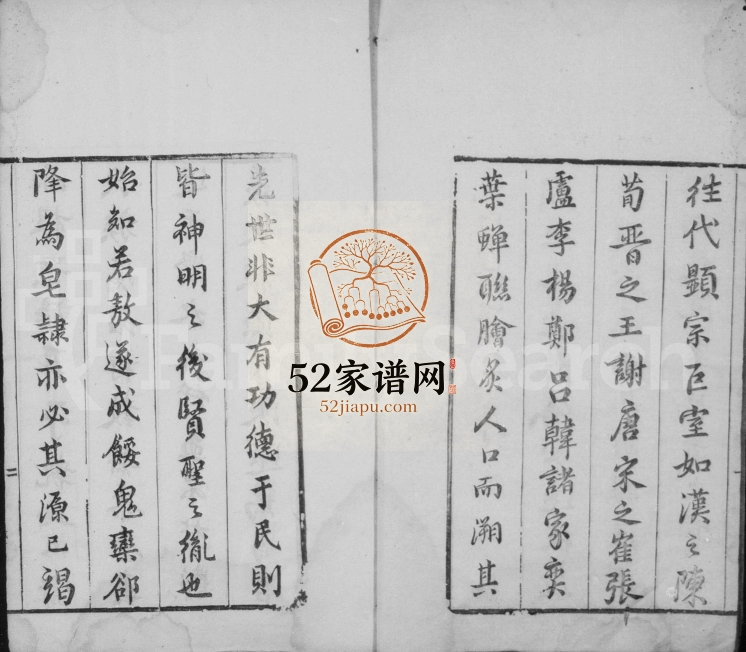 往代顯宗巨室如漢之陳
荀晋之王謝唐宋之崔張
盧李楊鄭呂韓諸家奕
葉蟬聯膾炙人口而溯其
先世非大有功德于民則
皆神明之後賢聖之胤也
始知若敖遂成餒鬼欒郤
降為皂隸亦必其源已竭
52家谱网
52jiapu.com
FamilySearch